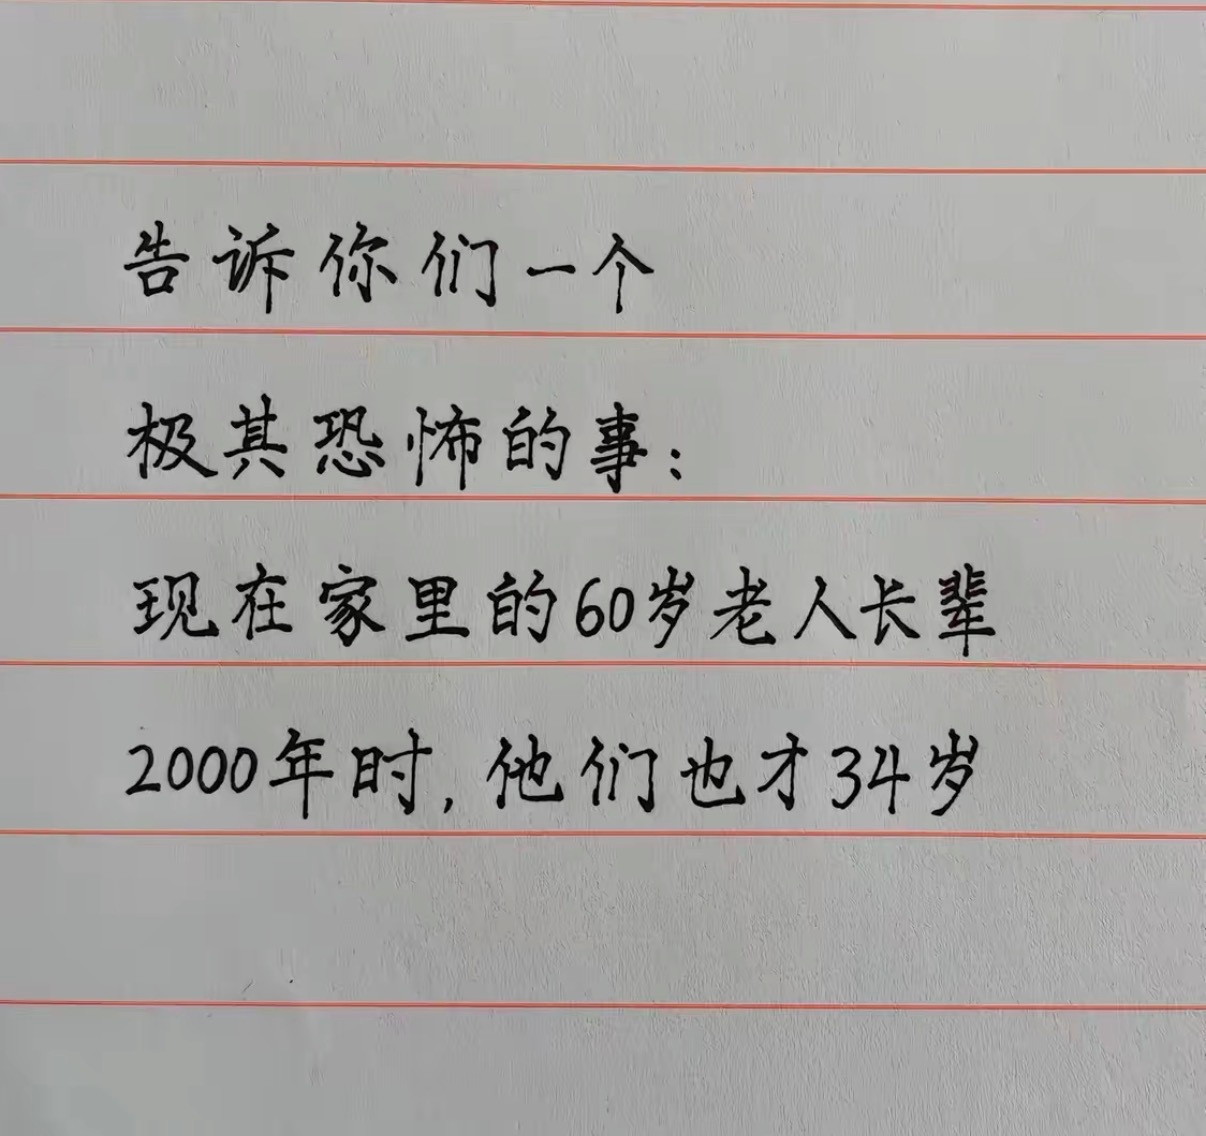 告诉你们一个
极其恐怖的事：
现在家里的60岁老人长辈
2000年时，他们也才34岁